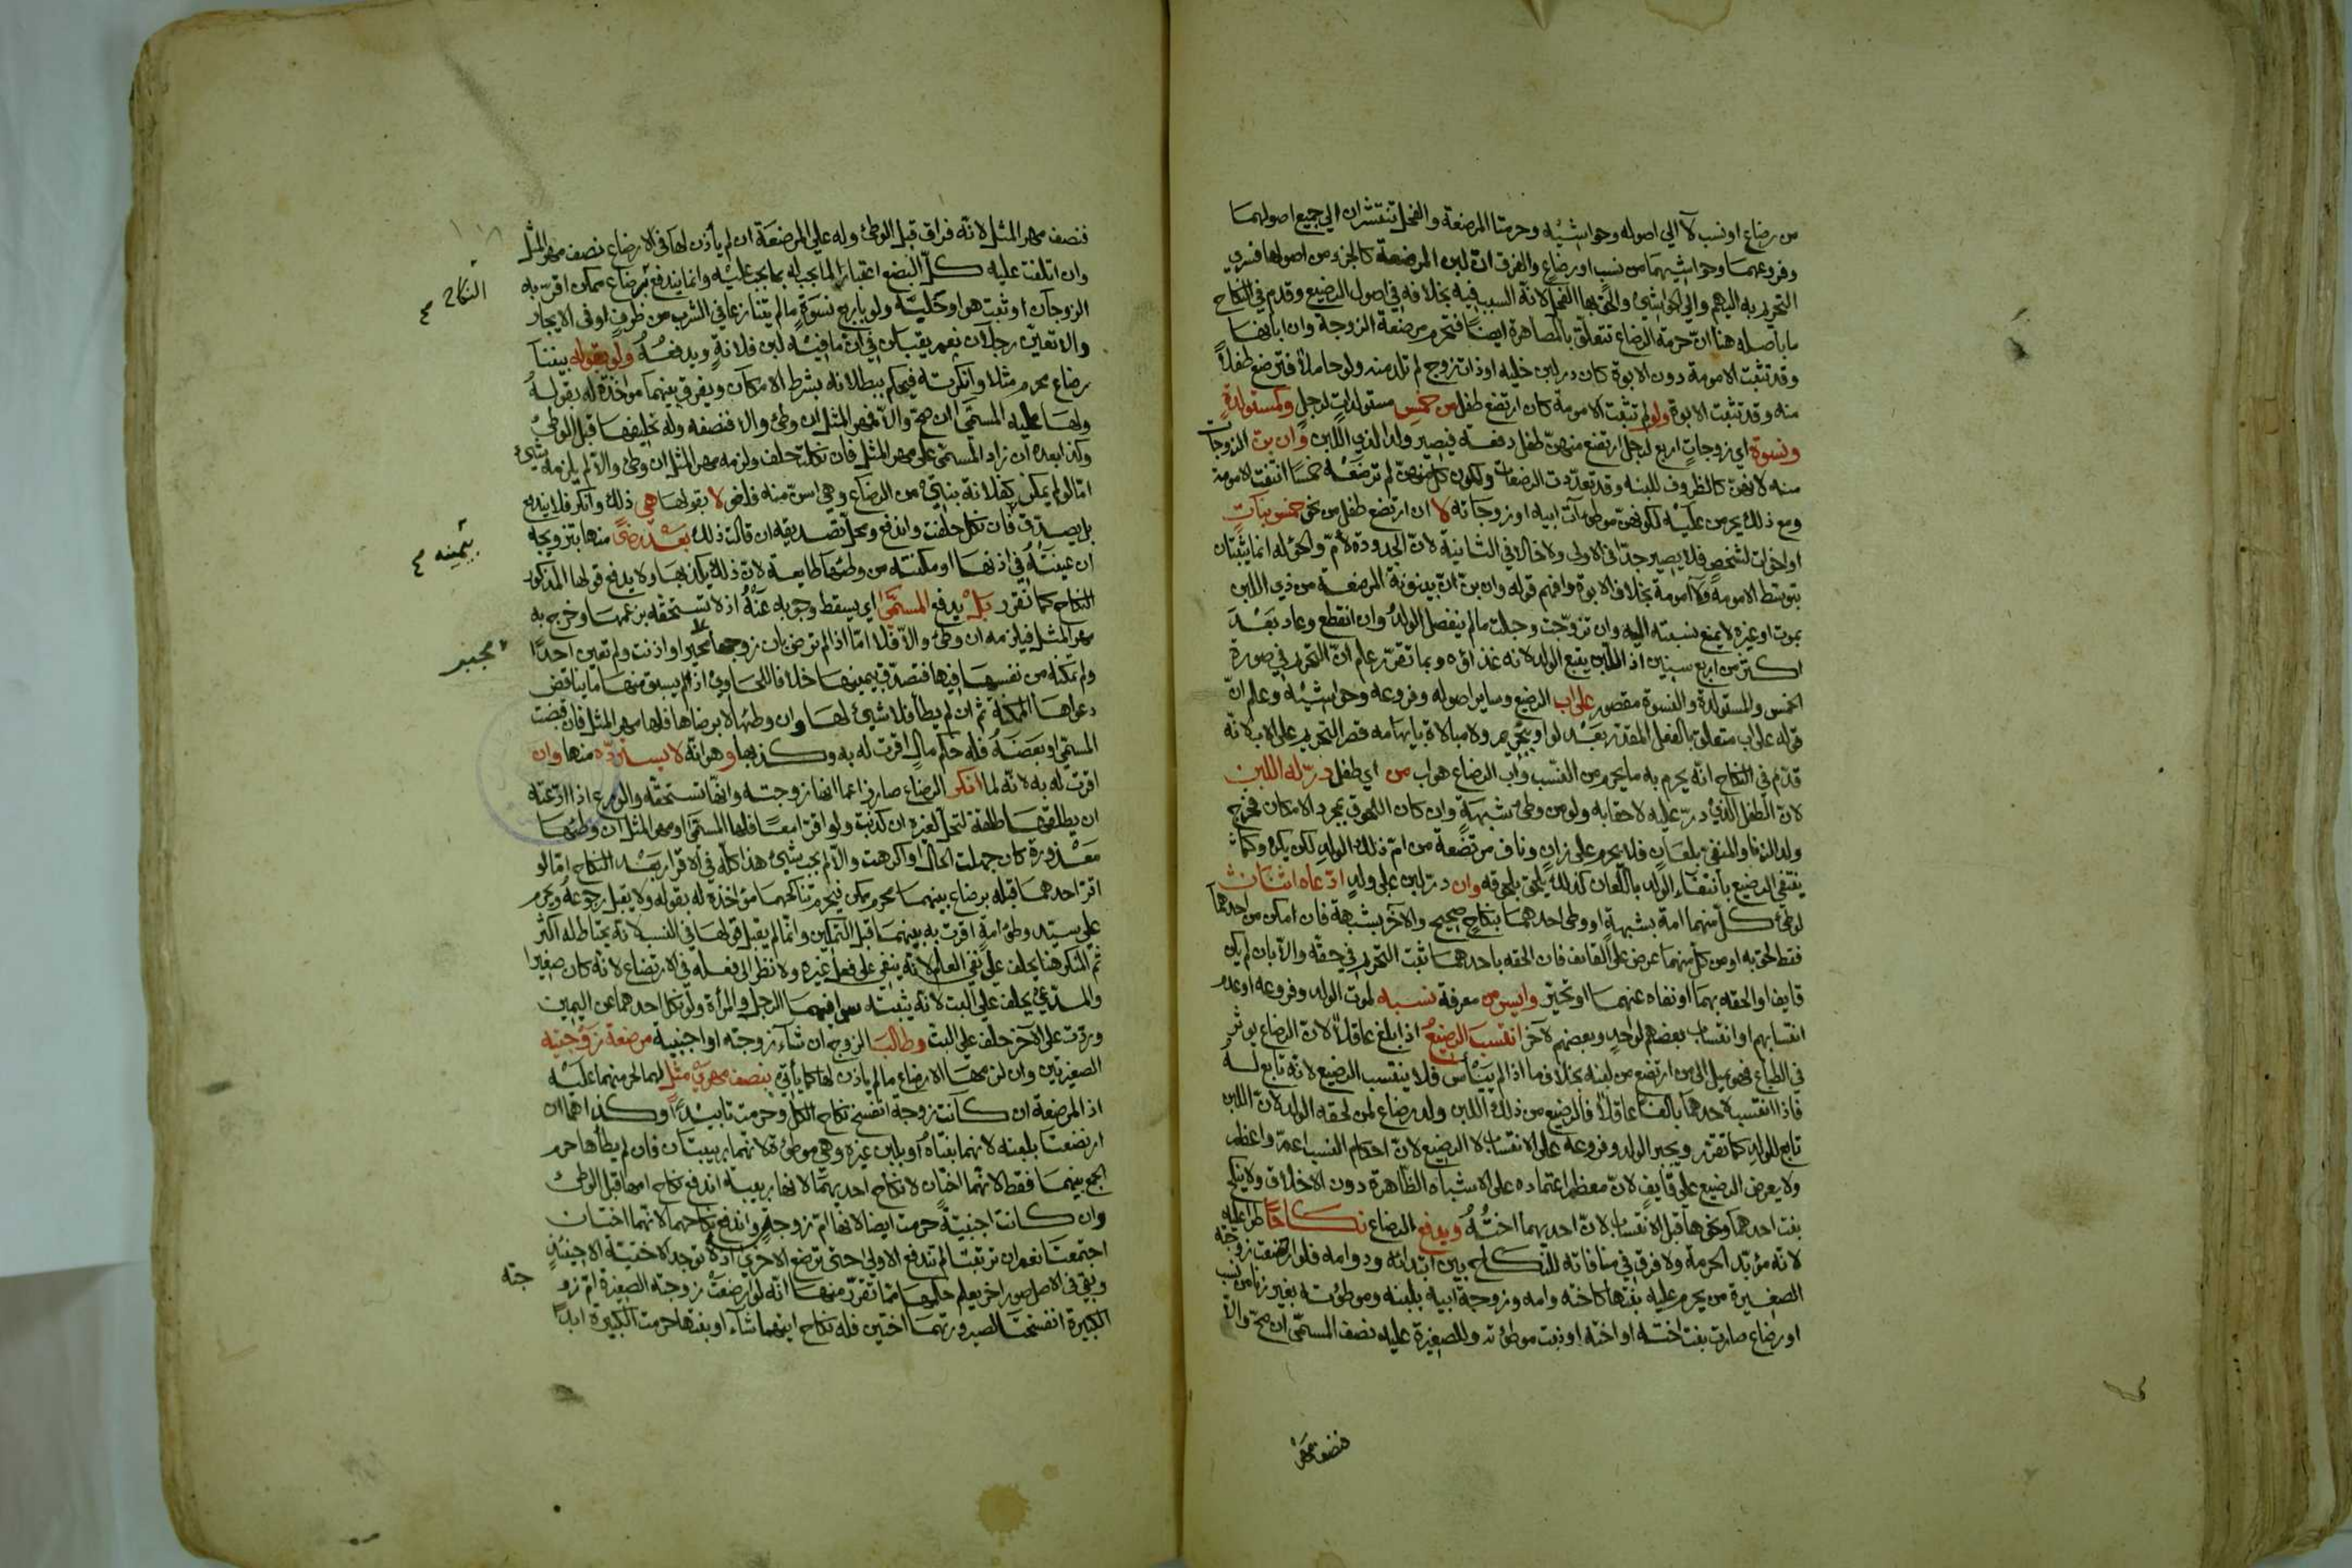 من رضاع او نسب لا الي اصوله وحواشيه وحرمتا المرضعة والفحل تنتشران الي جميع اصولهما
وفروعهما وحواشيهما من نسب او رضاع والفرق ان لبن المرضعة كالجزء من اصولها فسري
التحريم به اليهم والي الحواشي والحق بها الفحل لانه السبب فيه بخلافه في اصول الرضيع وقدم في النكاح
ما باصله هنا ان حرمة الرضاع تتعلق بالمصاهرة ايضا فتحرم مرضعة الزوجة وان ابانها
وقد تثبت الامومة دون الابوة كان در لبن خلية او ذات زوج لم تلد منه ولو حاملا فترضع طفلا
منه وقد تثبت الابوة ولو لم تثبت الامومة كان ارتضع طفل من خمس مستولدات لرجل وكمستولدة
ونسوة اي زوجات اربع لرجل ارتضع منهن طفل دفعة فيصير ولدا لذي اللبن وان بن الزوجات
منه لانهن كالظروف للبنه وقد تعددت الرضعات ولكون كل منهن لم ترضعه خمسا انتفت الامومة
ومع ذلك يحرمن عليه لكونهن موطوآت ابيه او زوجاته لا ان ارتضع طفل من نحو خمس بنات
او اخوات لشخص فلا يصير جدا في الاولى ولا خالا في الثانية لان الجدودة لأم والخؤلة انما يثبتان
بتوسط الامومة ولا امومة بخلاف الابوة وافهم قوله وان بن ان بينونة المرضعة من ذي اللبن
بموت او غيره لا يمنع نسبته اليه وان تزوجت وحملت ما لم ينفصل الولد وان انقطع وعاد بعد
اكثر من اربع سنين اذ اللبن يتبع الولد لانه غذاؤه وبما تقرر علم ان التحريم في صورة
الخمس والمستولدة والنسوة مقصور على اب الرضيع وساير اصوله وفروعه وحواشيه وعلم ان
قوله على اب متعلق بالفعل المقدر بعد لو او بتحريم ولا مبالاة بايهامه قصر التحريم على الاب لانه
قدم في النكاح انه يحرم به ما يحرم من النسب واب الرضاع هو اب من اي طفل در له اللبن
لان الطفل الذي در عليه لاحقا به ولو من وطئ شبهة وان كان اللحوق بمجرد الامكان فخرج
ولد الزنا والمنفي بلعان فلا يحرم على زان وناف مرتضعة من ام ذلك الولد لكن يكره وكما
ينتفي الرضيع بانتفاء الولد باللعان كذلك يلحق بلحوقه وان در لبن على ولد ادعاه اثنان
لوطئ كل منهما امة بشبهة او وطى احدهما بنكاح صحيح والآخر بشبهة فان امكن من احدهما
فقط لحق به او من كل منهما عرض على القائف فان الحقه باحدهما ثبت التحريم في حقه والا بان لم يكن
قايف او الحقه بهما او نفاه عنهما او تحير وايس من معرفة نسبه لموت الولد وفروعه او عدم
انتسابهم او انتساب بعضهم لواحد وبعضهم لآخر انتسب الرضيع اذا بلغ عاقلا لان الرضاع يؤثر
في الطباع فهو يميل الى من ارتضع من لبنه بخلاف ما اذا لم ييأس فلا ينتسب الرضيع لانه تابع له
فاذا انتسب لاحدهما بالغا عاقلا فالرضيع من ذلك اللبن ولد رضاع لمن لحقه الولد لان اللبن
تابع للولد كما تقرر ويجبر الولد وفروعه على الانتساب لا الرضيع لان احكام النسب اعم واعظم
ولا يعرض الرضيع على قايف لان معظم اعتماده على الاشباه الظاهرة دون الاخلاق ولا ينكح
بنت احدهما ونحوها قبل الانتساب لان احديهما اخته ويدفع الرضاع نكاحا طرا عليه
لانه مؤبد الحرمة ولا فرق في منافاته للنكاح بين ابتدائه ودوامه فلو ارضعت زوجته
الصغيرة من يحرم عليه بنتها كاخته وامه وزوجة ابيه بلبنه وموطوئته بغير زنا من نسب
او رضاع صارت بنت اخته او اخته او بنت موطوئته وللصغيرة عليه نصف المسمى ان صح والا
فنصف مهر
فنصف مهر المثل لانه فراق قبل الوطئ وله علي المرضعة ان لم يأذن لها في الارضاع نصف مهر المثل
وان اتلفت عليه كل البضع اعتبارا لما يجب له بما يجب عليه وانما يندفع برضاع ممكن اقر به
النكاح
الزوجان او ثبت هو او حلبه ولو باربع نسوة ما لم يتنازعا في الشرب من ظرف او في الايجار
والا تعين رجلان نعم يقبلن في ان ما فيه لبن فلانة ويدفعه ولو بقوله بيننا
رضاع محرم مثلا وانكرته فيحكم ببطلانه بشرط الامكان ويفرق بينهما مواخذة له بقوله
ولها عليه المسمى ان صح والا فمهر المثل ان وطئ والا فنصفه وله تحليفها قبل الوطئ
وكذا بعده ان زاد المسمى على مهر المثل فان نكلت حلف ولزمه مهر المثل ان وطئ والا لم يلزمه شيئ
اما لو لم يمكن كفلانة بنتي من الرضاع وهي اسن منه فلغو لا بقولها هي ذلك وانكر فلا يندفع
بل يصدق فان نكل حلفت واندفع ومحل تصديقه ان قالت ذلك بعد رضى منها بتزويجه
بيمينه
ان عينته في اذنها او مكنته من وطئها طايعة لان ذلك يكذبها ولا يدفع قولها المذكور
النكاح كما تقرر بل يدفع المسمى اي يسقط وجوبه عنه اذ لا تستحقه بزعمها وخرج به
مهر المثل فيلزمه ان وطئ والا فلا اما اذا لم ترض بان زوجها مجبر او اذنت ولم تعين احدا
مجبر
ولم تمكنه من نفسها فيها فتصدق بيمينها خلافا للحاوي اذ لم يسبق منها ما يناقض
دعواها الممكنة ثم ان لم يطأ فلا شيئ لها وان وطئها لا برضاها فلها مهر المثل فان قبضت
المسمى او بعضه فله حكم مال اقرت له به وكذبها وهو انه لا يسترده منها وان
اقرت له به لانه لما انكر الرضاع صار زاعما انها زوجته وانها تستحقه والورع اذا ادعته
ان يطلقها طلقة لتحل لغيره ان كذبت ولو اقرا معا فلها المسمى او مهر المثل ان وطئها
معذورة كان جهلت الحال او اكرهت والا لم يجب شيئ هذا كله في الاقرار بعد النكاح اما لو
اقر احدهما قبله برضاع بينهما محرم ممكن فيحرم تناكحهما مؤاخذة له بقوله ولا يقبل رجوعه ويحرم
على سيد وطؤ امة اقرت به بينهما قبل التمكين وانما لم يقبل قولها في النسب لانه يحتاط له اكثر
ثم المنكر هنا يحلف على نفي العلم لانه ينفي على فعل غيره ولا نظر الى فعله في الارتضاع لانه كان صغيرا
والمدعي يحلف على البت لانه يثبته سوا فيهما الرجل والمرأة ولو نكل احدهما عن اليمين
وردت على الآخر حلف على البت وطالبا الزوج ان شاء زوجته او اجنبية مرضعة زوجتيه
الصغيرتين وان لزمها الارضاع ما لم ياذن لها كما يأتي بنصف مهري مثل لهما لغرمهما عليه
اذ المرضعة ان كانت زوجة انفسخ نكاح الكل وحرمت تابيدا وكذا هما ان
ارتضعتا بلبنه لانهما بنتاه او بلبن غيره وهي موطوءة لانهما ربيبتان فان لم يطأها حرم
الجمع بينهما فقط لانهما اختان لا نكاح احديهما لانها ربيبة اندفع نكاح امها قبل الوطئ
وان كانت اجنبية حرمت ايضا لانها ام زوجة واندفع نكاحهما لانهما اختان
اجتمعتا نعم ان ترتبتا لم تندفع الاولى حتى ترضع الاخرى اذ لا توجد الاختية الا حينئذ
وبقي في الاصل صور اخر يعلم حكمها مما تقرر منها انه لو ارضعت زوجته الصغيرة ام زو
جته
الكبيرة انفسختا لصيرورتهما اختين فله نكاح ايتهما شاء او بنتها حرمت الكبيرة ابدا